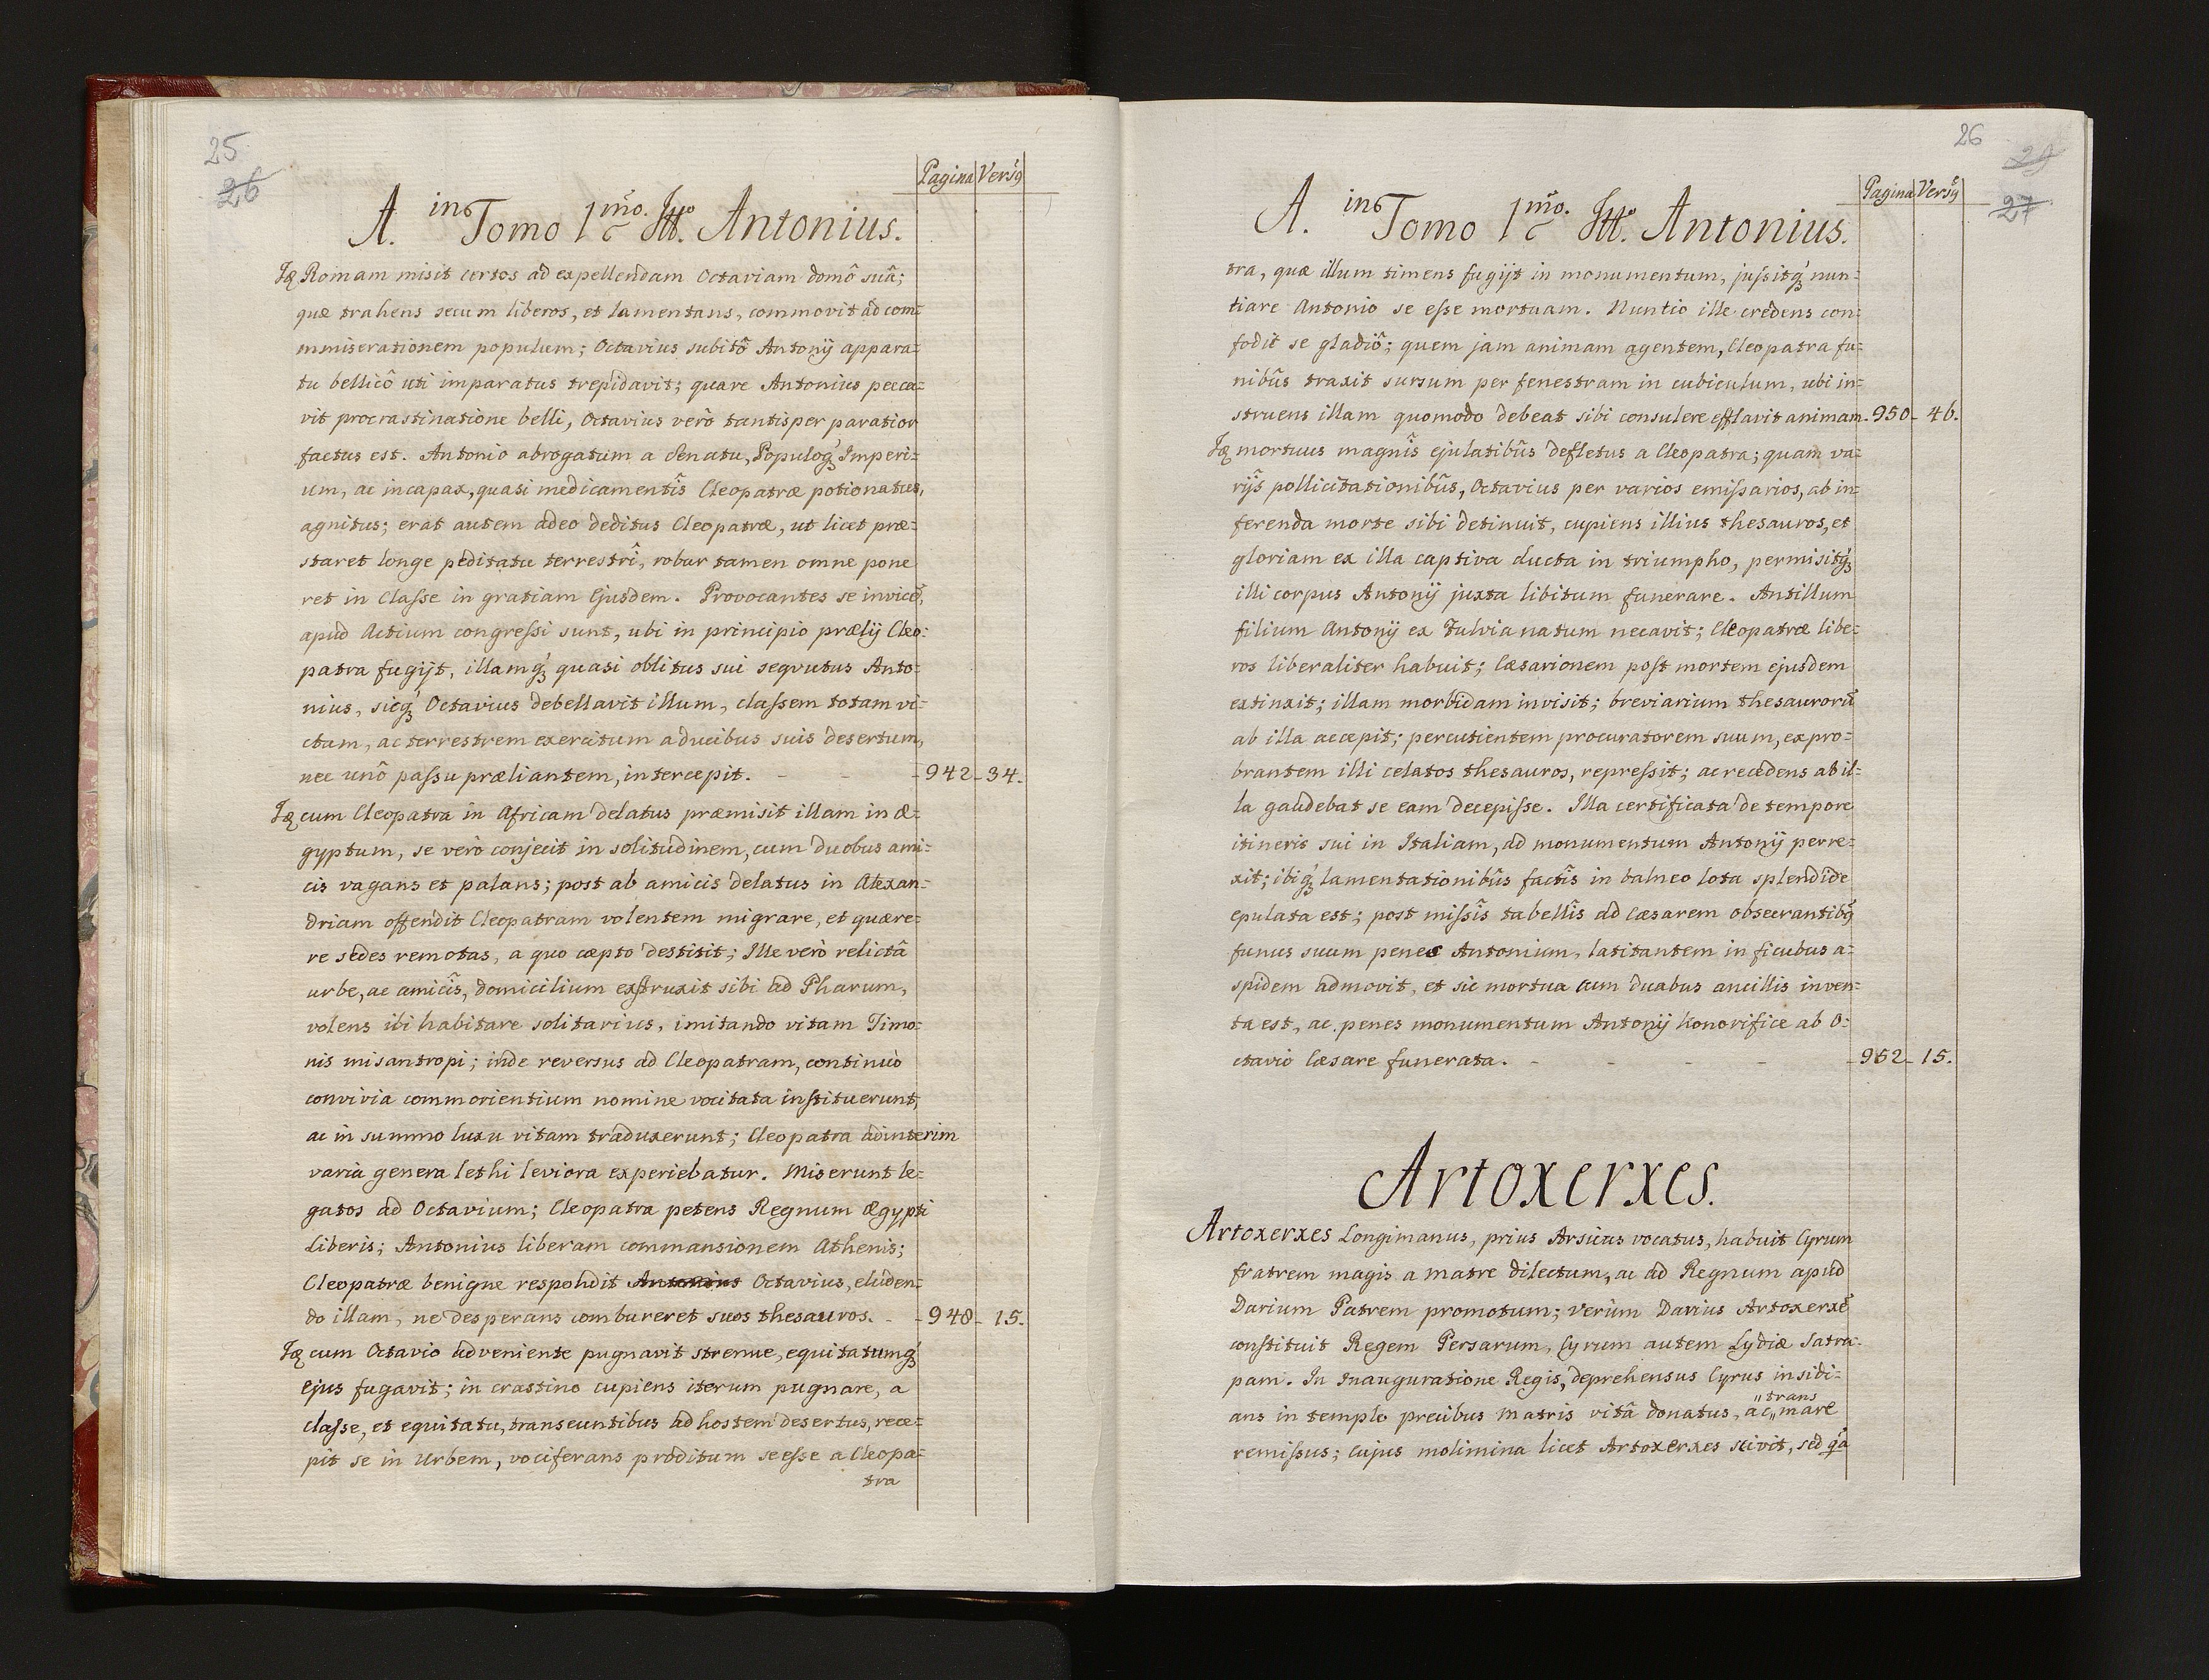 25
26
Pagina Versꝯ
A. in Tomo 1mo. Ttt. Antonius.
Romam misit certos ad expellendam Octaviam domô suâ;
quæ trahens secum liberos, et lamentans, commovit ad com=
mmiserationem populum; Octavius subitô Antonij appara=
tu bellicô uti imparatus trepidavit; quare Antonius pecca=
vit procrastinatione belli, Octavius verò tantisper paratior
factus est. Antonio abrogatum a Senatu, Populoqꝫ Imperi=
um, ac incapax, quasi medicamentîs Cleopatræ potionatus,
agnitus; erat autem adeo deditus Cleopatræ, ut licet præ=
staret longe peditatu terrestrî, robur tamen omne pone
ret in Classe in gratiam Ejusdem. Provocantes se invicẽ,
apud Actium congressi sunt, ubi in principio prælij Cleo=
patra fugijt, illamqꝫ quasi oblitus sui seqvutus Anto=
nius, sicqꝫ Octavius debellavit illum, classem totam vi=
ctam, ac terrestrem exercitum a ducibus suis desertum,
nec unô passu præliantem, intercepit. - - - 942 - 34.
cum Cleopatra in Africam delatus præmisit illam in Æ=
gyptum, se verò conjecit in solitudinem, cum duobus ami=
cis vagans et palans; post ab amicis delatus in Alexan=
driam offendit Cleopatram volentem migrare, et quære=
re sedes remotas, a quo cæpto destitit; Ille verò relictâ
urbe, ac amicîs, domicilium exstruxit sibi ad Pharum,
volens ibi habitare solitarius, imitando vitam Timo=
nis misantropi; inde reversus ad Cleopatram, continuò
convivia commorientium nomine vocitata instituerunt,
ac in summo luxu vitam traduxerunt; Cleopatra adinterim
varia genera lethi leviora experiebatur. Miserunt le=
gatos ad Octavium; Cleopatra petens Regnum Ægypti
Liberis; Antonius liberam commansionem Athenis;
Cleopatræ benigne respondit Antonius Octavius, eluden=
do illam, ne desperans combureret suos thesauros. - - 948 - 15.
cum Octavio adveniente pugnavit strenue, equitatumqꝫ
ejus fugavit; in crastino cupiens iterum pugnare, a
classe, et equitatu, transeuntibus ad hostem desertus, rece=
pit se in Urbem, vociferans proditum se esse a Cleopa=
tra
26
29
27
Pagina Versꝯ
A. in Tomo 1mo. Ttt. Antonius.
tra, quæ illum timens fugijt in monumentum, jussitqꝫ nun=
tiare Antonio se esse mortuam. Nuntio ille credens con=
fodit se gladiô; quem jam animam agentem, Cleopatra fu=
nibûs traxit sursum per fenestram in cubiculum, ubi in=
struens illam quomodo debeat sibi consulere efflavit animam. 950 - 46.
mortuus magnîs ejulatibûs defletus a Cleopatra; quam va=
rijs pollicitationibûs, Octavius per varios emissarios, ab in=
ferenda morte sibi detinuit, cupiens illius thesauros, et
gloriam ex illa captiva ducta in triumpho, permisitqꝫ
illi corpus Antonij juxta libitum funerare. Antillum
filium Antonij ex Fulvia natum necavit; Cleopatræ libe=
ros liberaliter habuit; Cæsarionem post mortem ejusdem
extinxit; illam morbidam invisit; breviarium thesaurorũ
ab illa accepit; percutientem procuratorem suum, expro=
brantem illi celatos thesauros, repressit; ac recedens ab il=
la gaudebat se eam decepisse. Illa certificata de tempore
itineris sui in Italiam, ad monumentum Antonij perre=
xit; ibiqꝫ lamentationibûs factîs in balneo lota splendide
epulata est; post missîs tabellîs ad Cæsarem obsecrantibꝯ
funus suum penes Antonium, latitantem in ficubus a=
spidem admovit, et sic mortua cum duabus ancillis inven=
ta est, ac penes monumentum Antonij honorifice ab O=
ctavio Cæsare funerata. - - - - 952 - 15.
Artoxerxes.
Artoxerxes Longimanus, prius Arsicus vocatus, habuit Cyrum
fratrem magis a matre dilectum, ac ad Regnum apud
Darium Patrem promotum; verùm Darius Artoxerxẽ
constituit Regem Persarum, Cyrum autem Lydiæ Satra=
pam. In Inauguratione Regis, deprehensus Cyrus insidi=
"trans
ans in templo precibus Matris vitâ donatus, ac„ mare
remissus; cujus molimina licet Artoxerxes scivit, sed qa